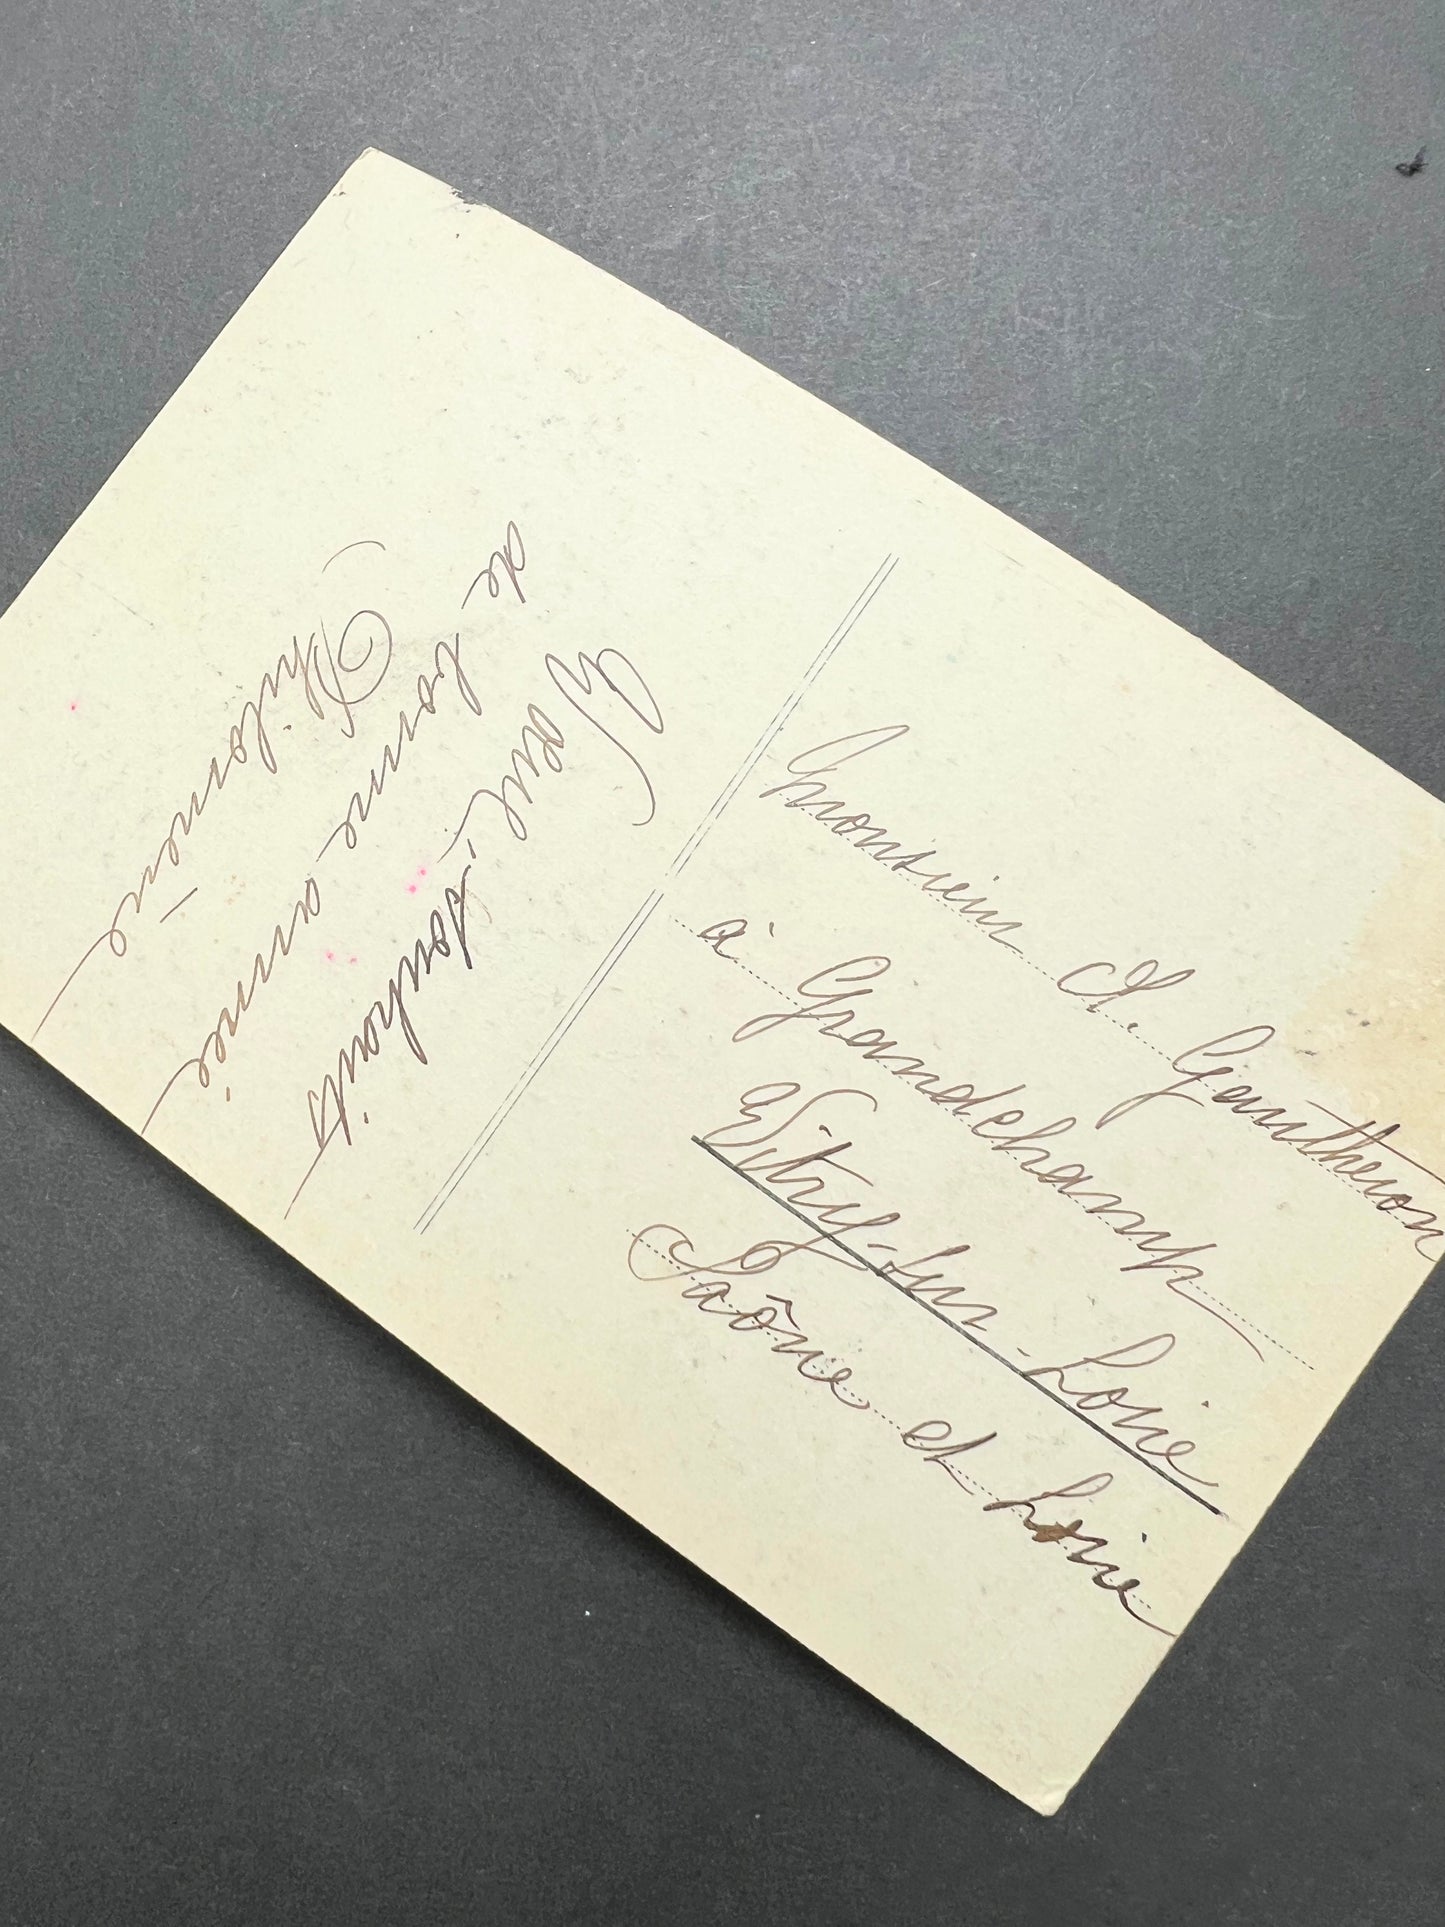 Voeux, souhaits
de bonne année
Philomène
Monsieur Gautheron
à Grandchamp
Vitry-sur-Loire
Saône et Loire